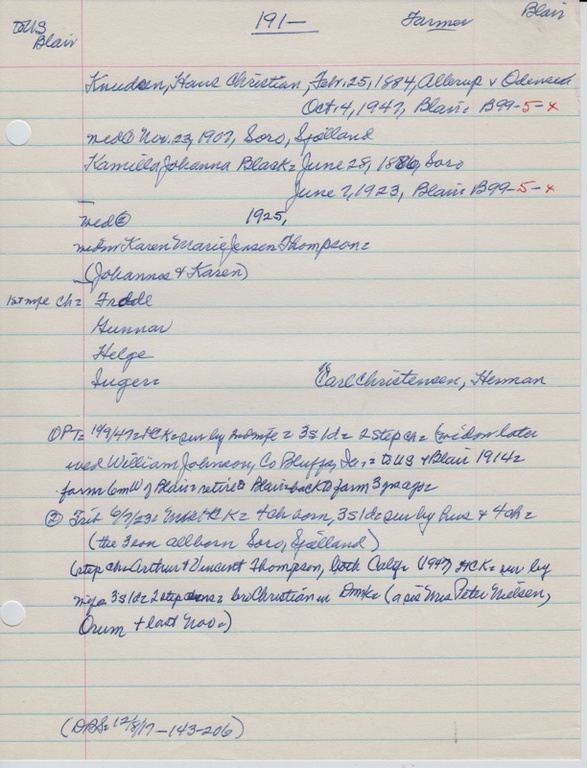 to US 191— Farmer Blair
Blair
Knudsen, Hans Christian, Feb. 25, 1884, Allerup v Odense=
Oct. 4, 1947, Blair= B99-5-x
med① Nov. 23, 1907, Soro, Sjælland
Kamilla Johanna Blask= June 28, 1886, Soro
June 7, 1923, Blair= B99-5-x
med② 1925,
Karen Marie Jensen Thompson=
(Johannes & Karen)
1st mge ch= Fredde
Gunnar
Helge
Inger= Carl Christensen, Herman
① PT= 10/9/47= HCK= sur by 2nd wife= 3s 1d= 2 step ch= (widow later
med William Johnson, Co Bluffs, Ia.,= to US & Blair 1914=
farm 6 mW of Blair= retired Blair= back to farm 3 yrs ago=
② Trib 6/7/23= Mrs HCK= 4 ch born, 3s 1d= sur by hus & 4 ch=
(the 3 son all born Soro, Sjælland)
(step ch= Arthur & Vincent Thompson, both Calif= (1947, HCK= sur by
3s 1d= 2 step sons= bro Christian in Dmk= (a sis Mrs Peter Nielsen,
Orum + last Nov=)
(DBS= 12/8/17—143-206)